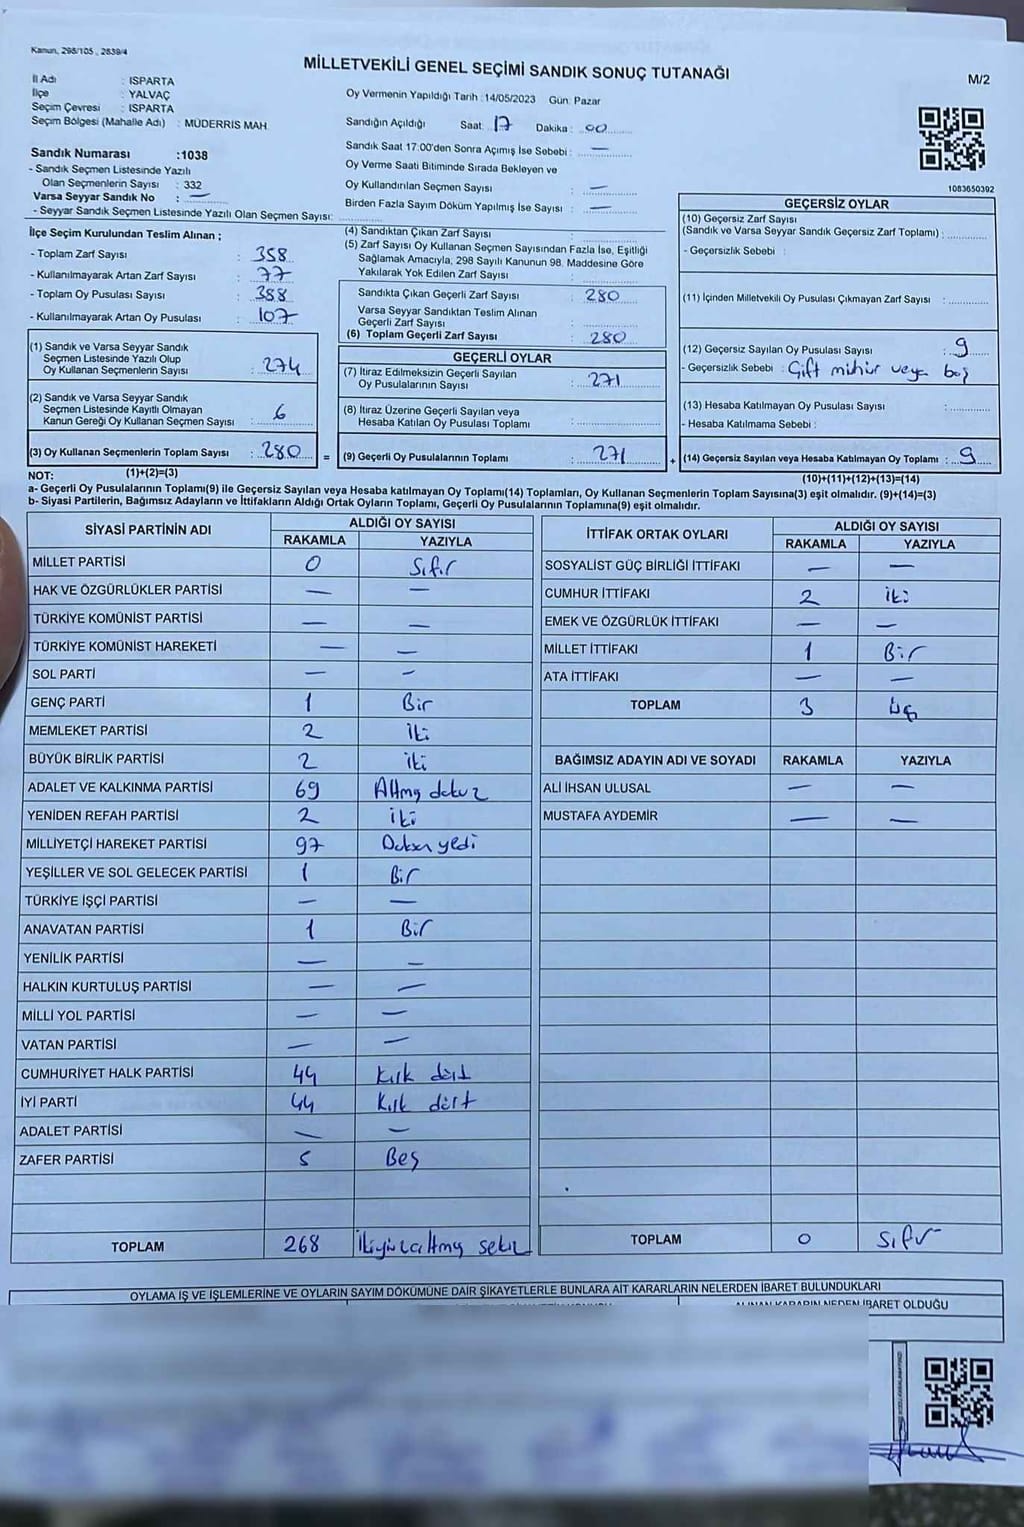 Kanun, 298/105 , 2839/4
MİLLETVEKİLİ GENEL SEÇİMİ SANDIK SONUÇ TUTANAĞI
M/2
İl Adı : ISPARTA
İlçe : YALVAÇ
Seçim Çevresi : ISPARTA
Seçim Bölgesi (Mahalle Adı) : MÜDERRİS MAH.
Sandık Numarası :1038
- Sandık Seçmen Listesinde Yazılı
Olan Seçmenlerin Sayısı : 332
Varsa Seyyar Sandık No : —
- Seyyar Sandık Seçmen Listesinde Yazılı Olan Seçmen Sayısı:
Oy Vermenin Yapıldığı Tarih :14/05/2023 Gün: Pazar
Sandığın Açıldığı Saat: 17 Dakika : 00
Sandık Saat 17:00'den Sonra Açımış İse Sebebi : —
Oy Verme Saati Bitiminde Sırada Bekleyen ve
Oy Kullandırılan Seçmen Sayısı : —
Birden Fazla Sayım Döküm Yapılmış İse Sayısı : —
1083650392
İlçe Seçim Kurulundan Teslim Alınan ;
- Toplam Zarf Sayısı : 358
- Kullanılmayarak Artan Zarf Sayısı : 77
- Toplam Oy Pusulası Sayısı : 388
- Kullanılmayarak Artan Oy Pusulası : 107
(1) Sandık ve Varsa Seyyar Sandık
Seçmen Listesinde Yazılı Olup
Oy Kullanan Seçmenlerin Sayısı : 274
(2) Sandık ve Varsa Seyyar Sandık
Seçmen Listesinde Kayıtlı Olmayan
Kanun Gereği Oy Kullanan Seçmen Sayısı : 6
(3) Oy Kullanan Seçmenlerin Toplam Sayısı : 280 =
(4) Sandıktan Çıkan Zarf Sayısı :
(5) Zarf Sayısı Oy Kullanan Seçmen Sayısından Fazla İse, Eşitliği
Sağlamak Amacıyla, 298 Sayılı Kanunun 98. Maddesine Göre
Yakılarak Yok Edilen Zarf Sayısı :
Sandıkta Çıkan Geçerli Zarf Sayısı : 280
Varsa Seyyar Sandıktan Teslim Alınan
Geçerli Zarf Sayısı :
(6) Toplam Geçerli Zarf Sayısı : 280
GEÇERLİ OYLAR
(7) İtiraz Edilmeksizin Geçerli Sayılan
Oy Pusulalarının Sayısı : 271
(8) İtiraz Üzerine Geçerli Sayılan veya
Hesaba Katılan Oy Pusulası Toplamı :
(9) Geçerli Oy Pusulalarının Toplamı : 271 +
GEÇERSİZ OYLAR
(10) Geçersiz Zarf Sayısı
(Sandık ve Varsa Seyyar Sandık Geçersiz Zarf Toplamı) :
- Geçersizlik Sebebi :
(11) İçinden Milletvekili Oy Pusulası Çıkmayan Zarf Sayısı :
(12) Geçersiz Sayılan Oy Pusulası Sayısı : 9
- Geçersizlik Sebebi : Çift mühür veya boş
(13) Hesaba Katılmayan Oy Pusulası Sayısı :
- Hesaba Katılmama Sebebi :
(14) Geçersiz Sayılan veya Hesaba Katılmayan Oy Toplamı : 9
NOT: (1)+(2)=(3) (10)+(11)+(12)+(13)=(14)
a- Geçerli Oy Pusulalarının Toplamı(9) ile Geçersiz Sayılan veya Hesaba katılmayan Oy Toplamı(14) Toplamları, Oy Kullanan Seçmenlerin Toplam Sayısına(3) eşit olmalıdır. (9)+(14)=(3)
b- Siyasi Partilerin, Bağımsız Adayların ve İttifakların Aldığı Ortak Oyların Toplamı, Geçerli Oy Pusulalarının Toplamına(9) eşit olmalıdır.
SİYASİ PARTİNİN ADI ALDIĞI OY SAYISI
RAKAMLA YAZIYLA
MİLLET PARTİSİ 0 Sıfır
HAK VE ÖZGÜRLÜKLER PARTİSİ — —
TÜRKİYE KOMÜNİST PARTİSİ — —
TÜRKİYE KOMÜNİST HAREKETİ — —
SOL PARTİ — —
GENÇ PARTİ 1 Bir
MEMLEKET PARTİSİ 2 İki
BÜYÜK BİRLİK PARTİSİ 2 İki
ADALET VE KALKINMA PARTİSİ 69 Altmış dokuz
YENİDEN REFAH PARTİSİ 2 İki
MİLLİYETÇİ HAREKET PARTİSİ 97 Doksan yedi
YEŞİLLER VE SOL GELECEK PARTİSİ 1 Bir
TÜRKİYE İŞÇİ PARTİSİ — —
ANAVATAN PARTİSİ 1 Bir
YENİLİK PARTİSİ — —
HALKIN KURTULUŞ PARTİSİ — —
MİLLİ YOL PARTİSİ — —
VATAN PARTİSİ — —
CUMHURİYET HALK PARTİSİ 44 Kırk dört
İYİ PARTİ 44 Kırk dört
ADALET PARTİSİ — —
ZAFER PARTİSİ 5 Beş
TOPLAM 268 İkiyüzaltmış sekiz
İTTİFAK ORTAK OYLARI ALDIĞI OY SAYISI
RAKAMLA YAZIYLA
SOSYALİST GÜÇ BİRLİĞİ İTTİFAKI — —
CUMHUR İTTİFAKI 2 İki
EMEK VE ÖZGÜRLÜK İTTİFAKI — —
MİLLET İTTİFAKI 1 Bir
ATA İTTİFAKI — —
TOPLAM 3 üç
BAĞIMSIZ ADAYIN ADI VE SOYADI RAKAMLA YAZIYLA
ALİ İHSAN ULUSAL — —
MUSTAFA AYDEMİR — —
TOPLAM 0 Sıfır
OYLAMA İŞ VE İŞLEMLERİNE VE OYLARIN SAYIM DÖKÜMÜNE DAİR ŞİKAYETLERLE BUNLARA AİT KARARLARIN NELERDEN İBARET BULUNDUKLARI
ALINAN KARARIN NEDEN İBARET OLDUĞU